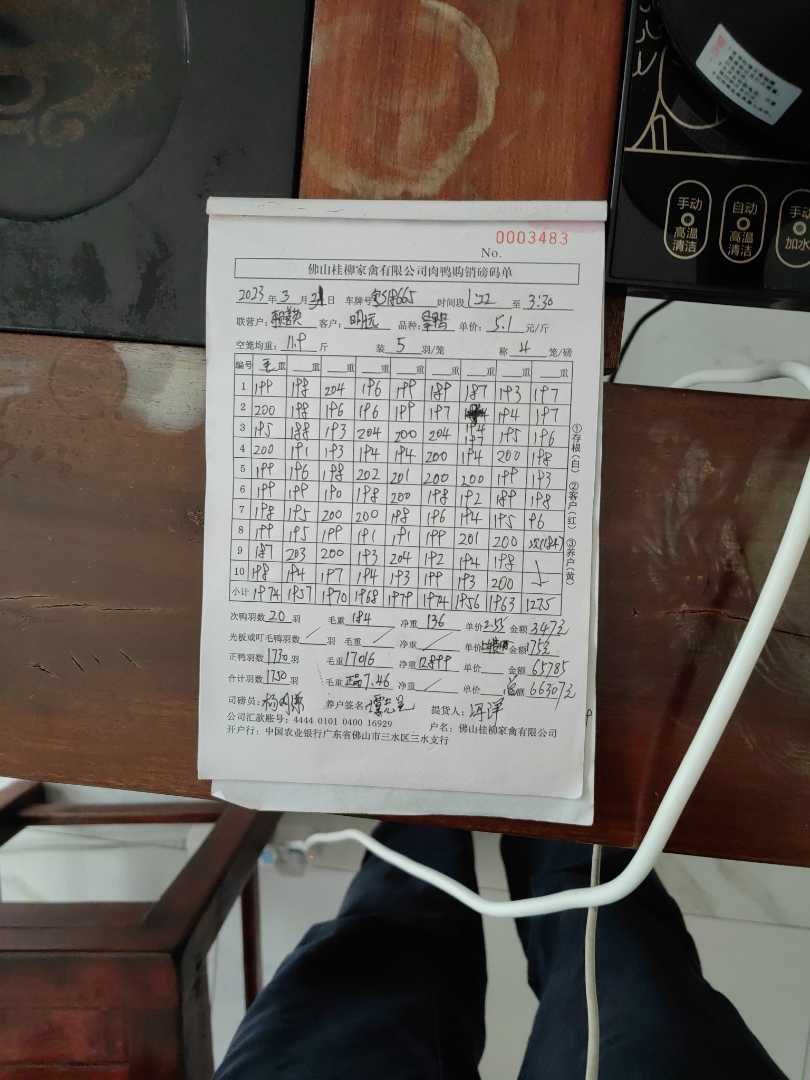 手动
高温
清洁
自动
高温
清洁
手动
加水
No. 0003483
佛山桂柳家禽有限公司肉鸭购销磅码单
2023年3月31日 车牌号 时间段 至 3:30
联营户: 客户:明远 品种: 单价:5.1元/斤
空笼均重:11.9斤 装5羽/笼 称4笼/磅
编号 毛重 重 重 重 重 重 重 重 重
1 199 198 204 196 199 189 187 193 197
2 200 198 196 196 199 197 194 194 197
3 195 188 193 204 200 204 197 195 196
4 200 191 193 194 194 200 194 200 198
5 199 196 198 202 201 200 200 199 193
6 199 199 190 198 200 198 192 189 198
7 198 195 200 200 198 196 194 195 96
8 199 195 199 191 191 199 201 200
9 187 203 200 193 204 192 194 198
10 198 194 197 194 193 199 193 200
小计 1974 1957 1970 1968 1979 1974 1956 1963 1275
①存根(白) ②客户(红) ③养户(黄)
次鸭羽数20羽 毛重184 净重136 单价2.55 金额347元
光板或叮毛鸭羽数/羽 毛重/ 净重/ 单价 金额175元
正鸭羽数1730羽 毛重17016 净重12899 单价 金额65785
合计羽数1750羽 毛重7.46 净重/ 单价 总额66307元
司磅员: 养户签名: 提货人:
公司汇款账号:4444 0101 0400 16929 户名:佛山桂柳家禽有限公司
开户行:中国农业银行广东省佛山市三水区三水支行